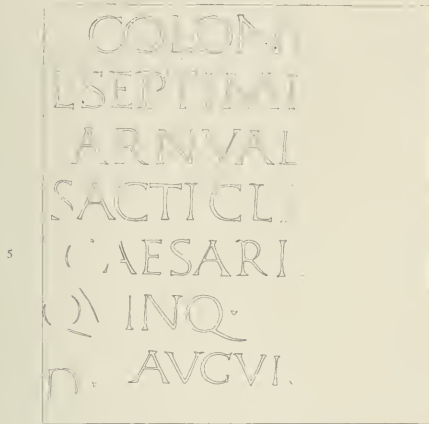 COLON
L SEPTIMI
ARNVAL
SACTI CL
5 CAESARI
INQ·
AVGVI